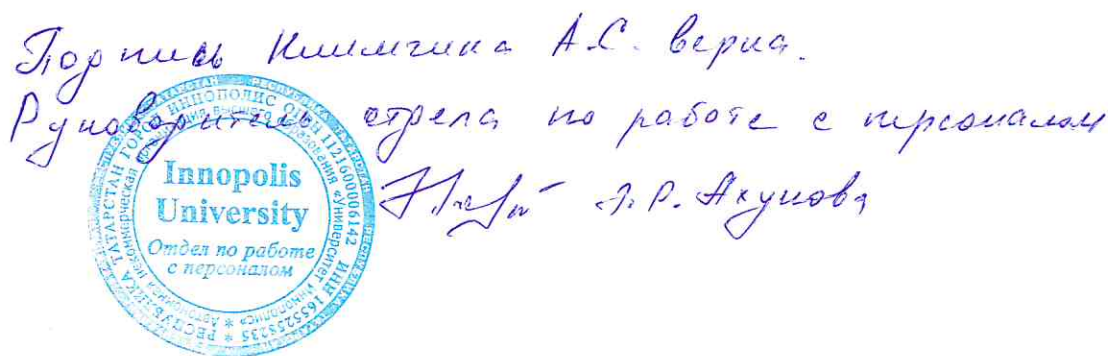 Подпись Климчика А.С. верна.
Руководитель отдела по работе с персоналом
Э.Р. Ахунова
РЕСПУБЛИКА ТАТАРСТАН ГОРОД ИННОПОЛИС ОГРН 1121600006142 ИНН 1655258235
Автономная некоммерческая организация высшего образования «Университет Иннополис»
Innopolis
University
Отдел по работе
с персоналом